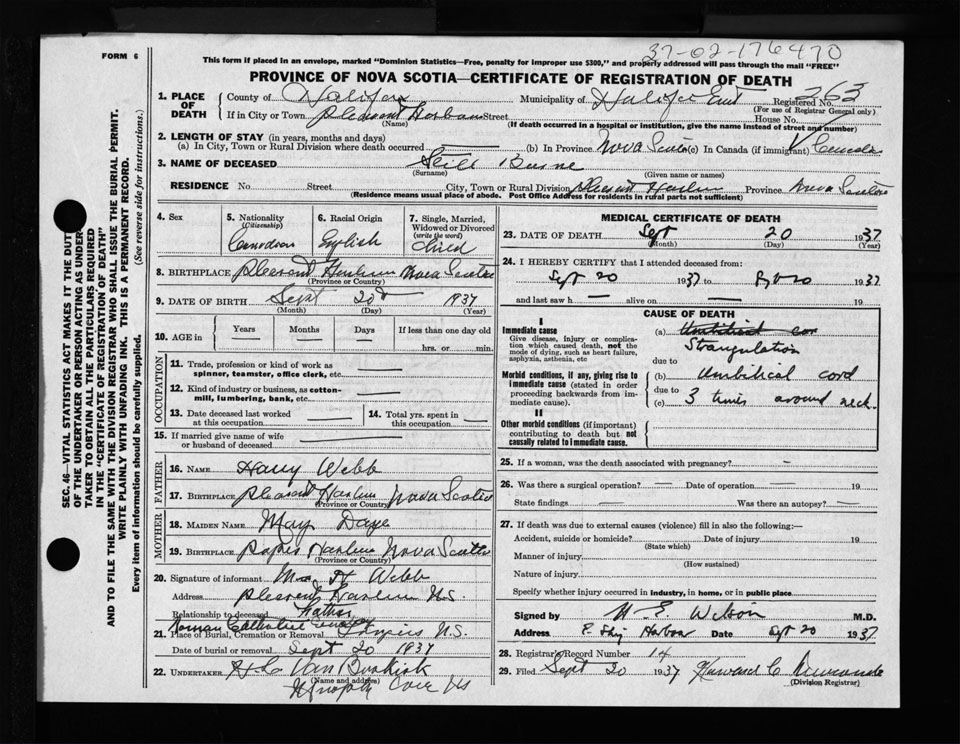 FORM 6
37-02-176470
This form if placed in an envelope, marked "Dominion Statistics—Free, penalty for improper use $300," and properly addressed will pass through the mail "FREE"
PROVINCE OF NOVA SCOTIA—CERTIFICATE OF REGISTRATION OF DEATH
1. PLACE OF DEATH
County of Halifax Municipality of Halifax East Registered No. 263
(For use of Registrar General only)
If in City or Town Pleasant Harbour Street House No.
(Name) (If death occurred in a hospital or institution, give the name instead of street and number)
2. LENGTH OF STAY (in years, months and days)
(a) In City, Town or Rural Division where death occurred (b) In Province Nova Scotia (c) In Canada (if immigrant) Canada
3. NAME OF DECEASED Still Borne
(Surname) (Given name or names)
RESIDENCE No. Street City, Town or Rural Division Pleasant Harbour Province Nova Scotia
(Residence means usual place of abode. Post Office Address for residents in rural parts not sufficient)
4. Sex
5. Nationality (Citizenship) Canadian
6. Racial Origin English
7. Single, Married, Widowed or Divorced (write the word) Child
8. BIRTHPLACE Pleasant Harbour Nova Scotia
(Province or Country)
9. DATE OF BIRTH Sept 20 1937
(Month) (Day) (Year)
10. AGE in Years Months Days If less than one day old
hrs. or min.
OCCUPATION
11. Trade, profession or kind of work as spinner, teamster, office clerk, etc.
12. Kind of industry or business, as cotton-mill, lumbering, bank, etc.
13. Date deceased last worked at this occupation
14. Total yrs. spent in this occupation
15. If married give name of wife or husband of deceased
FATHER
16. NAME Harry Webb
17. BIRTHPLACE Pleasant Harbour Nova Scotia
(Province or Country)
MOTHER
18. MAIDEN NAME May Daye
19. BIRTHPLACE Popes Harbour Nova Scotia
(Province or Country)
20. Signature of informant Mrs H Webb
Address Pleasant Harbour N.S.
Relationship to deceased Father
Roman Catholic Cemetery
21. Place of Burial, Cremation or Removal N.S.
Date of burial or removal Sept 20 1937
22. UNDERTAKER H C Van Buskirk
(Name and address)
Cove NS
MEDICAL CERTIFICATE OF DEATH
23. DATE OF DEATH Sept 20 1937
(Month) (Day) (Year)
24. I HEREBY CERTIFY that I attended deceased from:
Sept 20 1937 to 20 1937
and last saw h alive on 19
CAUSE OF DEATH
I
Immediate cause
Give disease, injury or complication which caused death, not the mode of dying, such as heart failure, asphyxia, asthenia, etc
(a) Umbilical cor
Strangulation
due to
Morbid conditions, if any, giving rise to immediate cause (stated in order proceeding backwards from immediate cause).
(b) Umbilical cord
due to
(c) 3 times around neck
II
Other morbid conditions (if important) contributing to death but not causally related to immediate cause.
25. If a woman, was the death associated with pregnancy?
26. Was there a surgical operation? Date of operation 19
State findings Was there an autopsy?
27. If death was due to external causes (violence) fill in also the following:—
Accident, suicide or homicide? Date of injury 19
(State which)
Manner of injury
(How sustained)
Nature of injury
Specify whether injury occurred in industry, in home, or in public place
Signed by H E Wilson M.D.
Address Harbour Date Sept 20 1937
28. Registrar's Record Number 14
29. Filed Sept 20 1937 Howard C
(Division Registrar)
SEC. 46—VITAL STATISTICS ACT MAKES IT THE DUTY OF THE UNDERTAKER OR PERSON ACTING AS UNDERTAKER TO OBTAIN ALL THE PARTICULARS REQUIRED IN THE "CERTIFICATE OF REGISTRATION OF DEATH"
AND TO FILE THE SAME WITH THE DIVISION REGISTRAR WHO SHALL ISSUE THE BURIAL PERMIT.
WRITE PLAINLY WITH UNFADING INK. THIS IS A PERMANENT RECORD.
Every item of information should be carefully supplied. (See reverse side for instructions.)